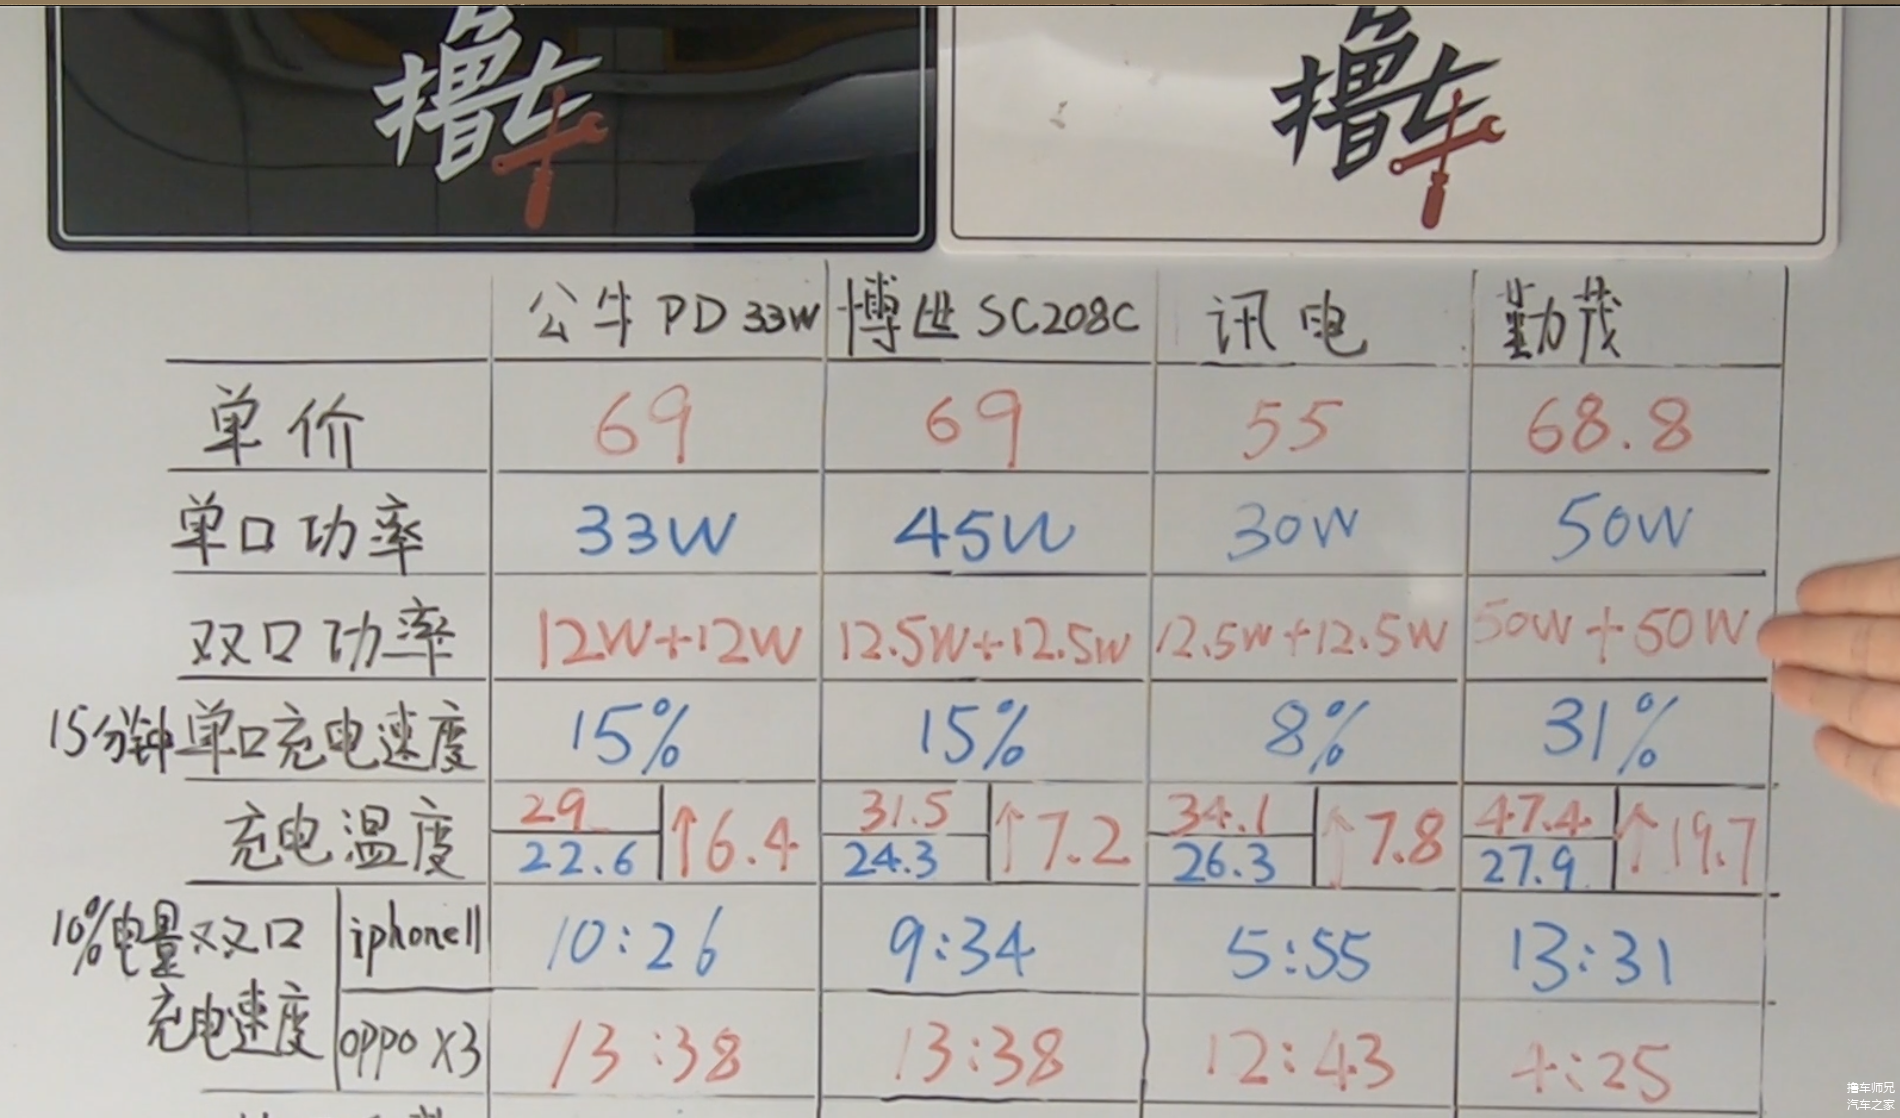 撸车
撸车
公牛 PD 33W 博世 SC208C 讯电 勤茂
单价 69 69 55 68.8
单口功率 33W 45W 30W 50W
双口功率 12W+12W 12.5W+12.5W 12.5W+12.5W 50W+50W
15分钟单口充电速度 15% 15% 8% 31%
充电温度 29 22.6 ↑6.4 31.5 24.3 ↑7.2 34.1 26.3 ↑7.8 47.4 27.9 ↑19.7
10%电量双口充电速度 iphone11 10:26 9:34 5:55 13:31
oppo X3 13:38 13:38 12:43 4:25
撸车师兄
汽车之家